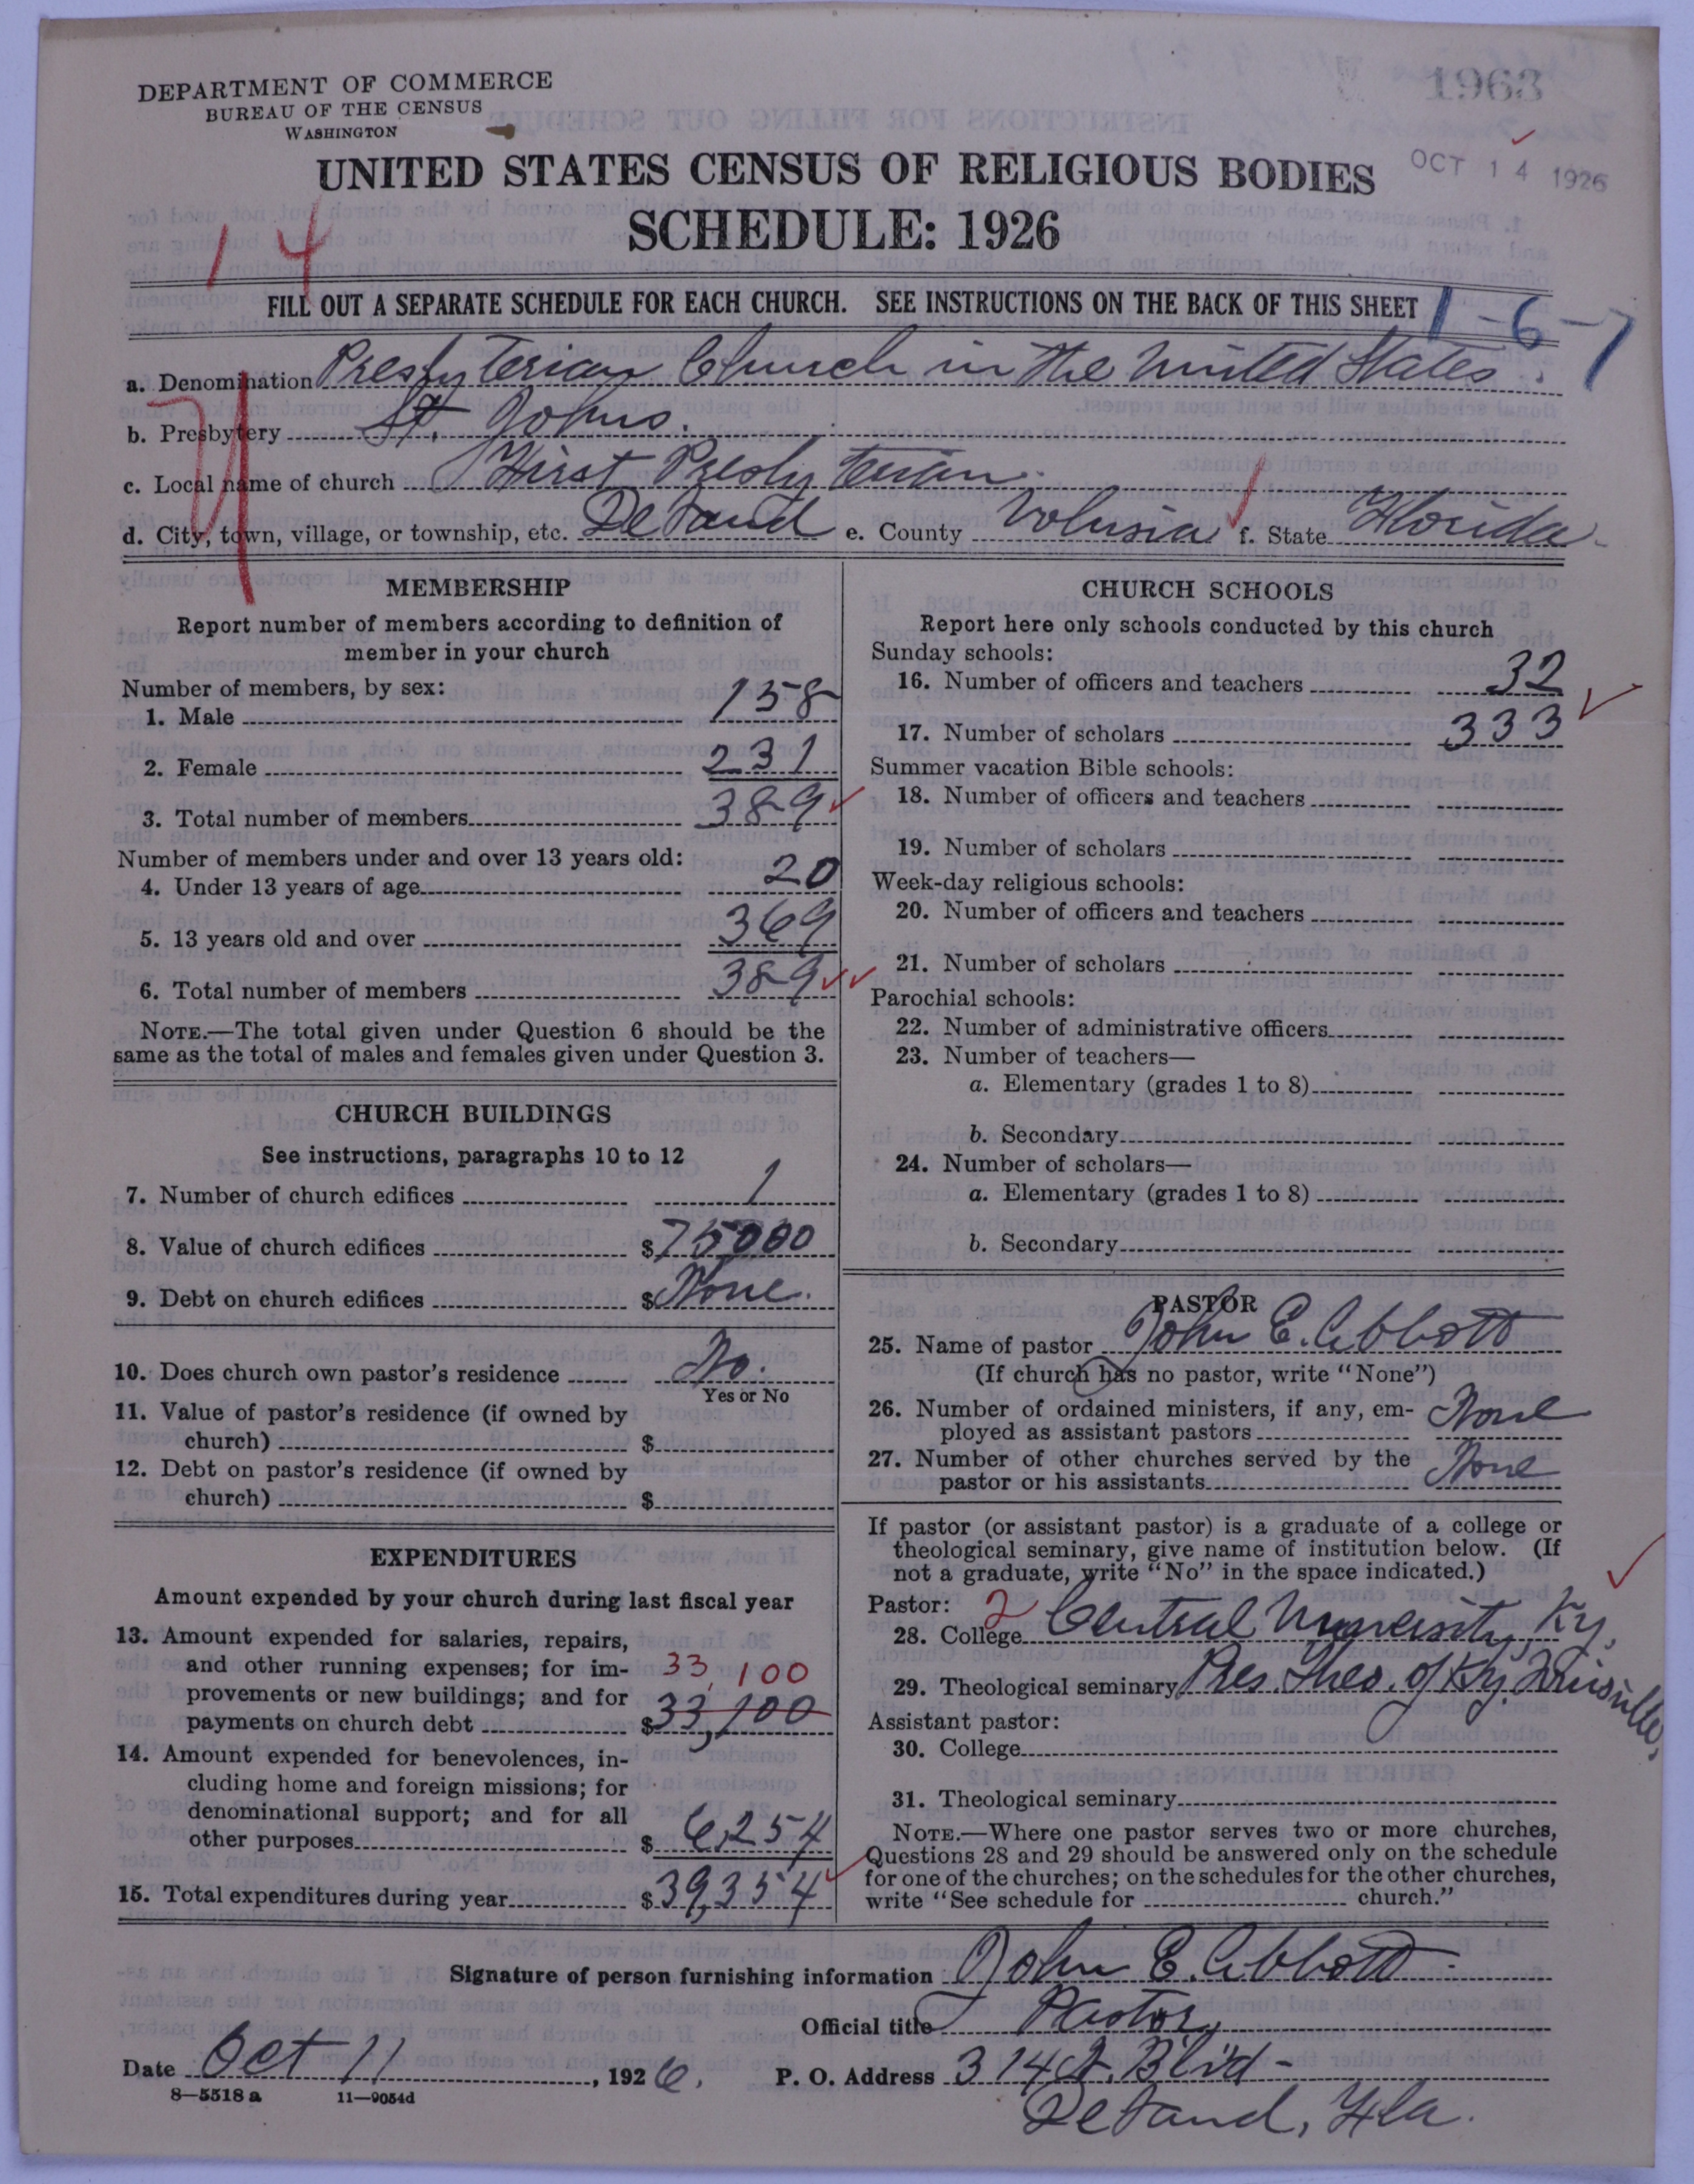 DEPARTMENT OF COMMERCE
BUREAU OF THE CENSUS
WASHINGTON
1963
UNITED STATES CENSUS OF RELIGIOUS BODIES
OCT 14 1926
SCHEDULE: 1926
14
FILL OUT A SEPARATE SCHEDULE FOR EACH CHURCH. SEE INSTRUCTIONS ON THE BACK OF THIS SHEET
1-6-7
a. Denomination Presbyterian Church in the United States.
b. Presbytery St. Johns.
c. Local name of church First Presbyterian
d. City, town, village, or township, etc. DeLand e. County Volusia f. State Florida
MEMBERSHIP
Report number of members according to definition of
member in your church
Number of members, by sex:
1. Male 158
2. Female 231
3. Total number of members 389
Number of members under and over 13 years old:
4. Under 13 years of age 20
5. 13 years old and over 369
6. Total number of members 389
NOTE.—The total given under Question 6 should be the
same as the total of males and females given under Question 3.
CHURCH BUILDINGS
See instructions, paragraphs 10 to 12
7. Number of church edifices 1
8. Value of church edifices $75000
9. Debt on church edifices $None.
10. Does church own pastor's residence No.
Yes or No
11. Value of pastor's residence (if owned by
church) $
12. Debt on pastor's residence (if owned by
church) $
EXPENDITURES
Amount expended by your church during last fiscal year
13. Amount expended for salaries, repairs,
and other running expenses; for im- 33,100
provements or new buildings; and for
payments on church debt $33,100
14. Amount expended for benevolences, in-
cluding home and foreign missions; for
denominational support; and for all
other purposes $6,254
15. Total expenditures during year $39,354
CHURCH SCHOOLS
Report here only schools conducted by this church
Sunday schools:
16. Number of officers and teachers 32
17. Number of scholars 333
Summer vacation Bible schools:
18. Number of officers and teachers
19. Number of scholars
Week-day religious schools:
20. Number of officers and teachers
21. Number of scholars
Parochial schools:
22. Number of administrative officers
23. Number of teachers—
a. Elementary (grades 1 to 8)
b. Secondary
24. Number of scholars—
a. Elementary (grades 1 to 8)
b. Secondary
PASTOR
25. Name of pastor John E. Abbott
(If church has no pastor, write "None")
26. Number of ordained ministers, if any, em-
ployed as assistant pastors None
27. Number of other churches served by the
pastor or his assistants None
If pastor (or assistant pastor) is a graduate of a college or
theological seminary, give name of institution below. (If
not a graduate, write "No" in the space indicated.)
Pastor: 2
28. College Central University, Ky.
29. Theological seminary Pres. Theo. of Ky. Louisville.
Assistant pastor:
30. College
31. Theological seminary
NOTE.—Where one pastor serves two or more churches,
Questions 28 and 29 should be answered only on the schedule
for one of the churches; on the schedules for the other churches,
write "See schedule for church."
Signature of person furnishing information John E. Abbott
Official title Pastor
Date Oct 11, 1926. P. O. Address 314 Blvd-
8-5518 a 11-9054d
DeLand, Fla.